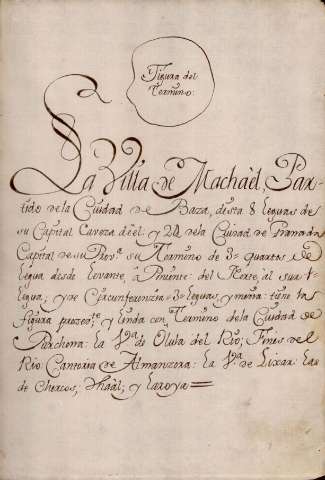 Figura del
Termino:
La Villa de Machael, Par-
tido de la Ciudad de Baza, dista 8 leguas de
su Capital Caveza de el, y 24 de la Ciudad de Granada
Capital de su Rno. su Termino de 3 quartos de
legua desde levante, a Poniente del Norte al sur 1
legua, y de Circunferenzia 3 leguas, y media: tiene la
figura y linda con Termino de la Ciudad de
Purchena: la Va. de Olula del Rio; Fines del
Rio Cantoria de Almanzora: la Va. de Lixar: La
de Chercos, Thaal, y Laroya =